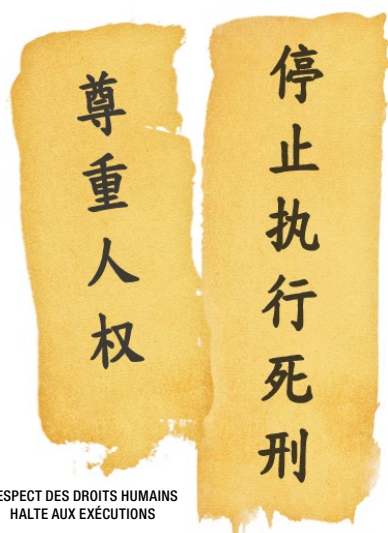 尊重人权
停止执行死刑
ESPECT DES DROITS HUMAINS
HALTE AUX EXÉCUTIONS